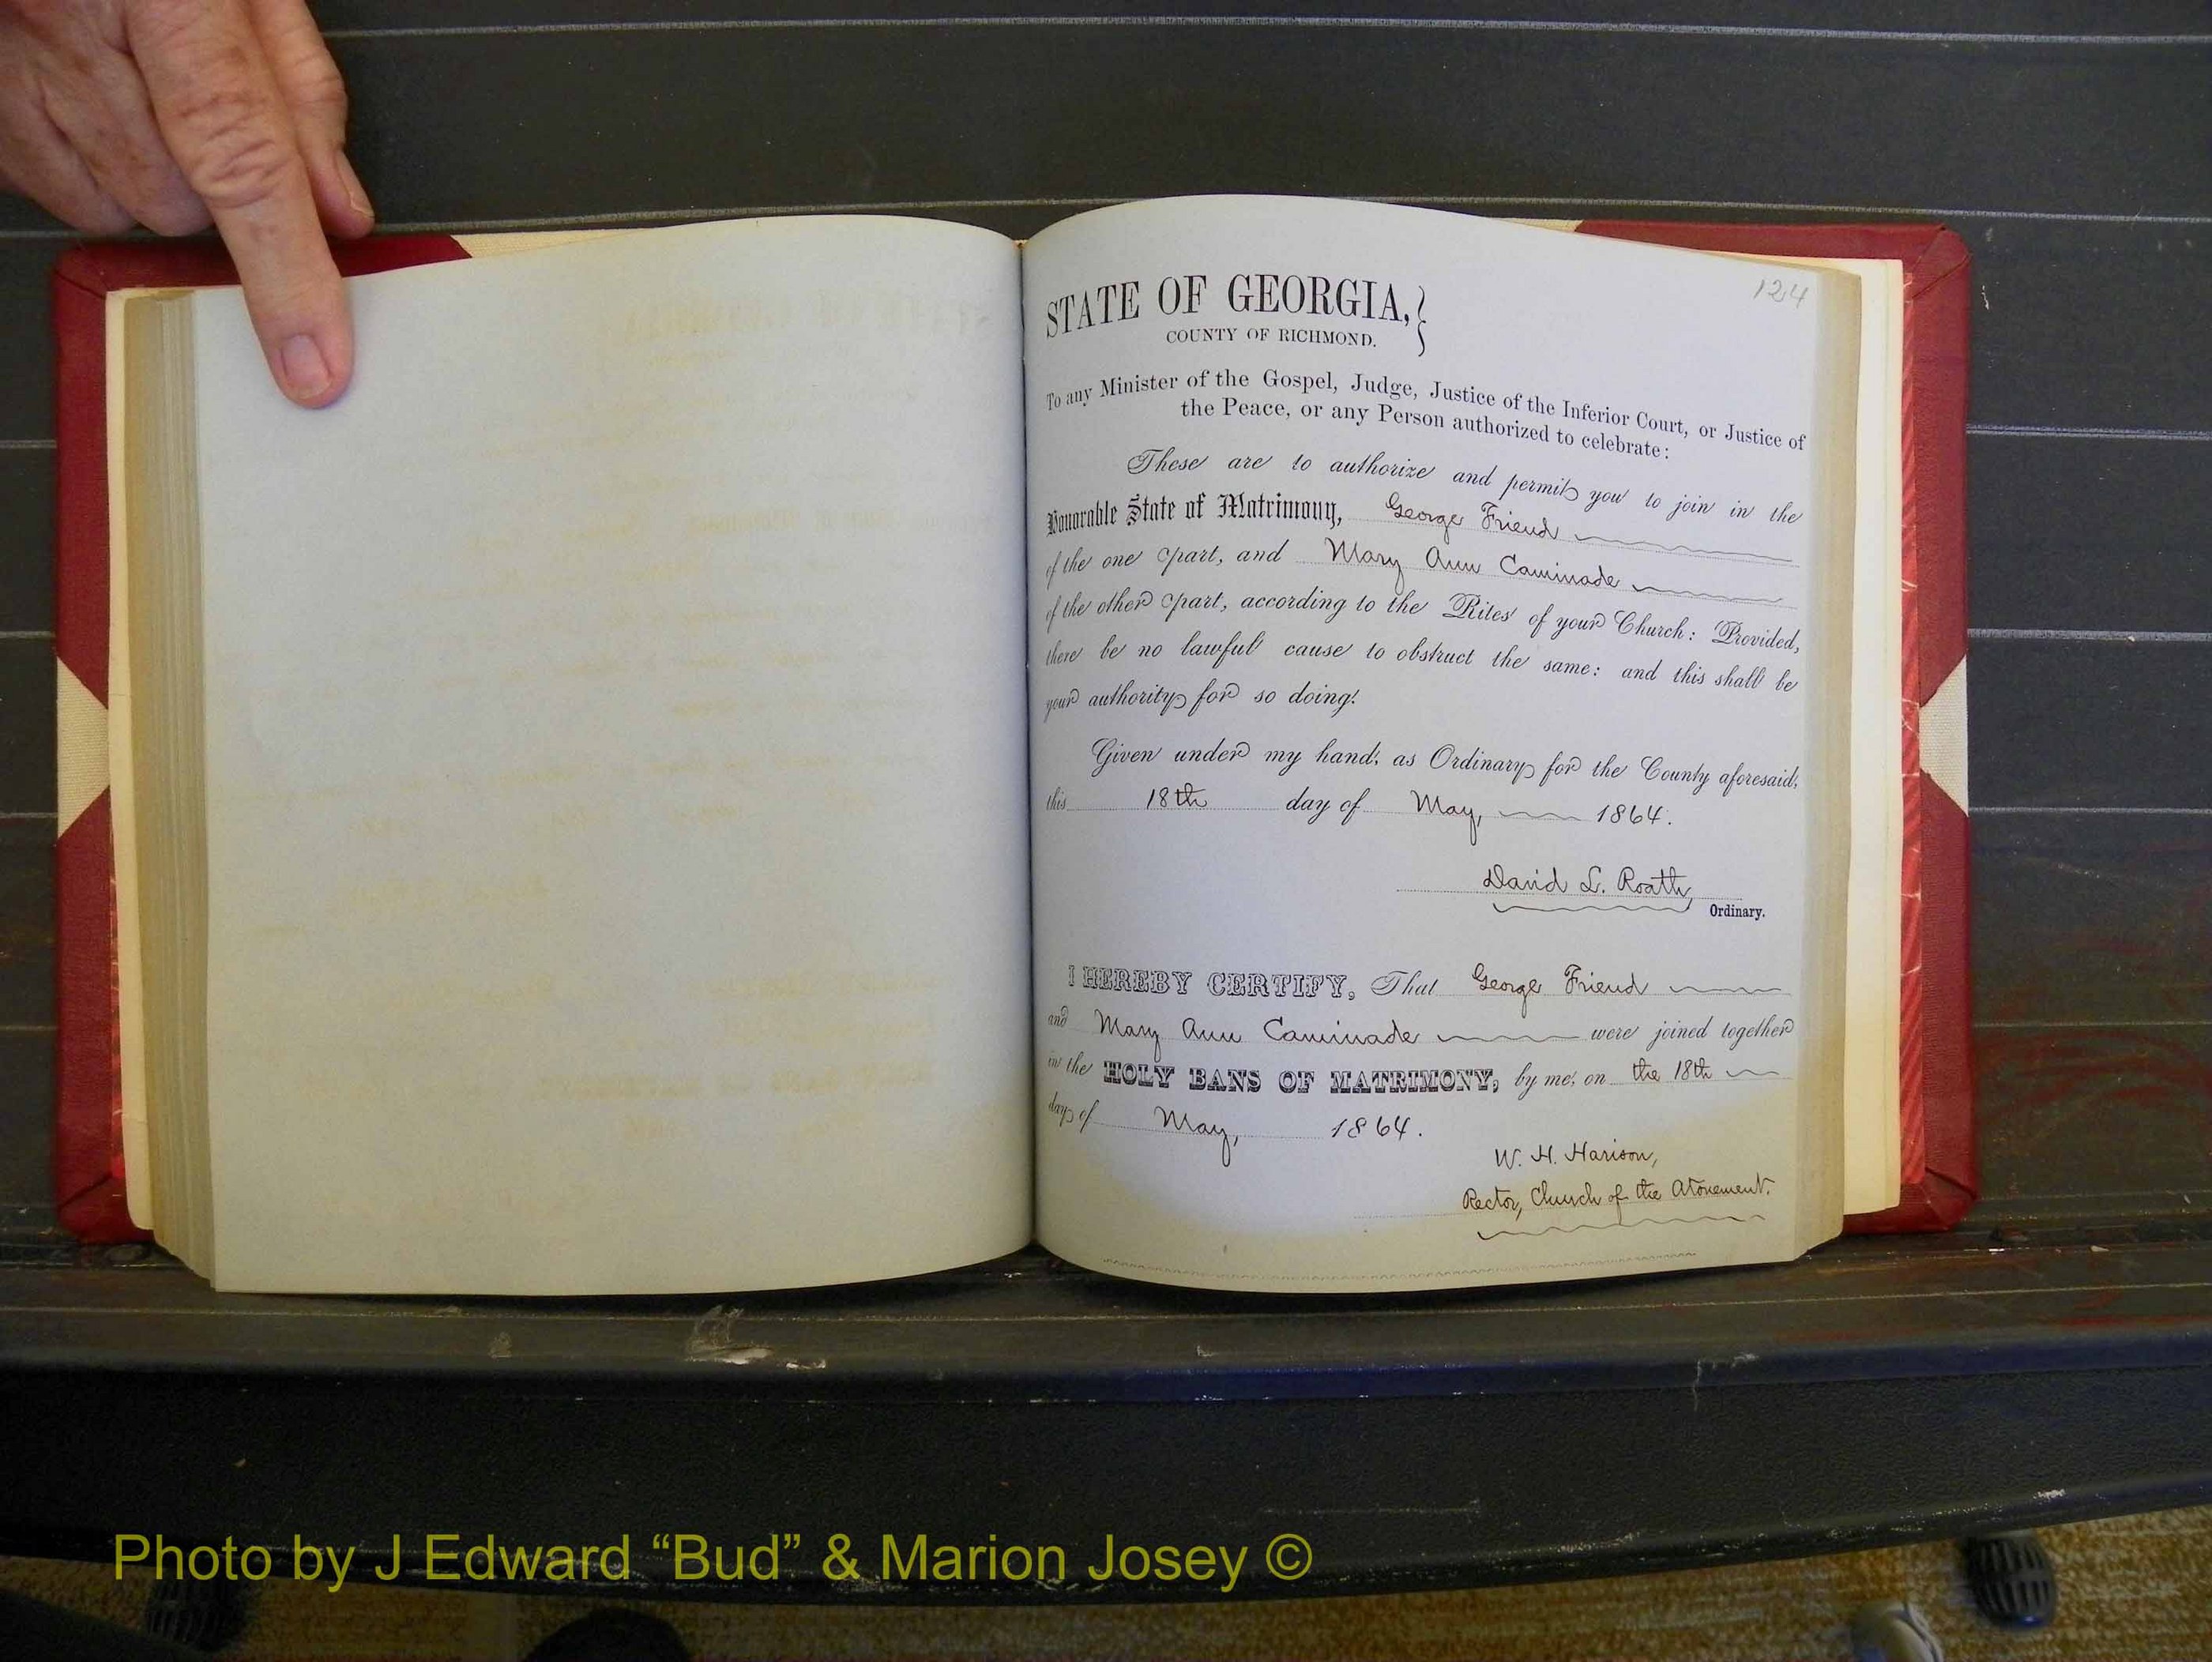 124
STATE OF GEORGIA,
COUNTY OF RICHMOND.
To any Minister of the Gospel, Judge, Justice of the Inferior Court, or Justice of
the Peace, or any Person authorized to celebrate:
These are to authorize and permit you to join in the
Honorable State of Matrimony, George Friend
of the one part, and Mary Ann Caminade
of the other part, according to the Rites of your Church: Provided,
there be no lawful cause to obstruct the same: and this shall be
your authority for so doing.
Given under my hand, as Ordinary for the County aforesaid,
this 18th day of May, 1864.
David L. Roath,
Ordinary.
I HEREBY CERTIFY, That George Friend
and Mary Ann Caminade were joined together
in the HOLY BANS OF MATRIMONY, by me, on the 18th
day of May, 1864.
W. H. Harison,
Rector, Church of the Atonement.
Photo by J Edward “Bud” & Marion Josey ©